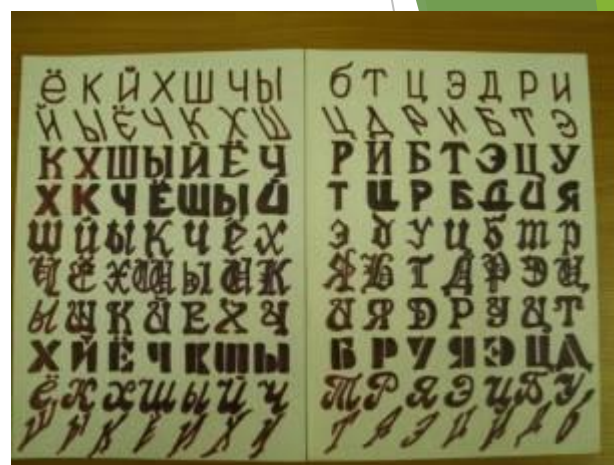 Ё К Й Х Ш Ч Ы
Й Ы Ё Ч К Х Ш
К Х Ш Ы Й Ё Ч
Х К Ч Ё Ш Ы Й
Ш Й Ы К Ч Ё Х
Ч Ё Х Ш Ы Й К
Ы Ш К Й Ё Х Ч
Х Й Ё Ч К Ш Ы
Ё К Х Ш Ы Й Ч
Ш Ы К Ё Й Х Ч
б Т Ц Э Д Р И
Ц Д Р И Б Т Э
Р И Б Т Э Ц У
Т Ц Р Б Д И Я
Э д У Ц б т р
Я Б Т Д Р Э Ц
И Я Д Р У Ц Т
Б Р У Я Э Ц Д
Т Р Я Э Ц Б У
Т Я Э Ц И Д б